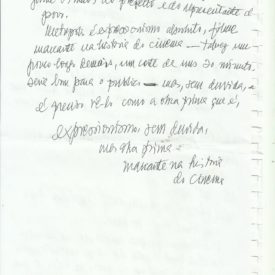 povo.
Metropolis é expressionismo absoluto, filme
marcante na história do cinema — talvez um
pouco longo demais, um corte de uns 20 minutos
seria bom para o público — mas, sem duvida,
é preciso vê-lo como a obra prima que é,
expressionismo sem duvida,
uma obra prima e
marcante na história
do cinema